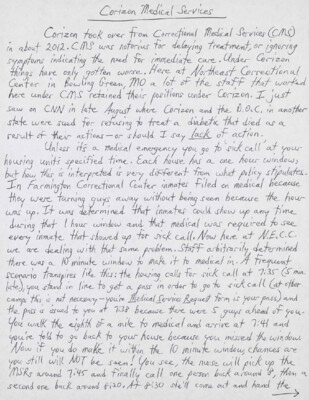 Corizen Medical Services
Corizen took over from Correctional Medical Services (CMS)
in about 2012. CMS was notorius for delaying treatment, or ignoring
symptoms indicating the need for immediate care. Under Corizen
things have only gotten worse. Here at Northeast Correctional
Center in Bowling Green, MO a lot of the staff that worked
here under CMS retained their positions under Corizen. I just
saw on CNN in late August where Corizen and the D.O.C. in another
state were sued for refusing to treat a diabetic that died as a
result of their actions—or should I say lack of action.
Unless it's a medical emergency you go to sick call at your
housing units specified time. Each house has a one hour window,
but how this is interpreted is very different from what policy stipulates.
In Farmington Correctional Center inmates filed on medical because
they were turning guys away without being seen because the hour
was up. It was determined that inmates could show up any time
during that 1 hour window and that medical was required to see
every inmate that showed up for sick call. Now here at N.E.C.C.
we are dealing with that same problem. Staff arbitrarily determined
there was a 10 minute window to make it to medical in. A frequent
scenario transpires like this: the housing calls for sick call at 7:35 (5 min.
late), you stand in line to get a pass in order to go to sick call (at other
camps this is not necessary—your Medical Service Request form is your pass) and
the pass is issued to you at 7:38 because there were 5 guys ahead of you.
You walk the eighth of a mile to medical and arrive at 7:41 and
you're told to go back to your house because you missed the window.
Now if you do make it within the 10 minute window chances are
you still will NOT be seen! You see, the nurse will pick up the
MSRs around 7:45 and finally call one person back around 8, then a
second one back around 8:20. At 8:30 she'll come out and hand the